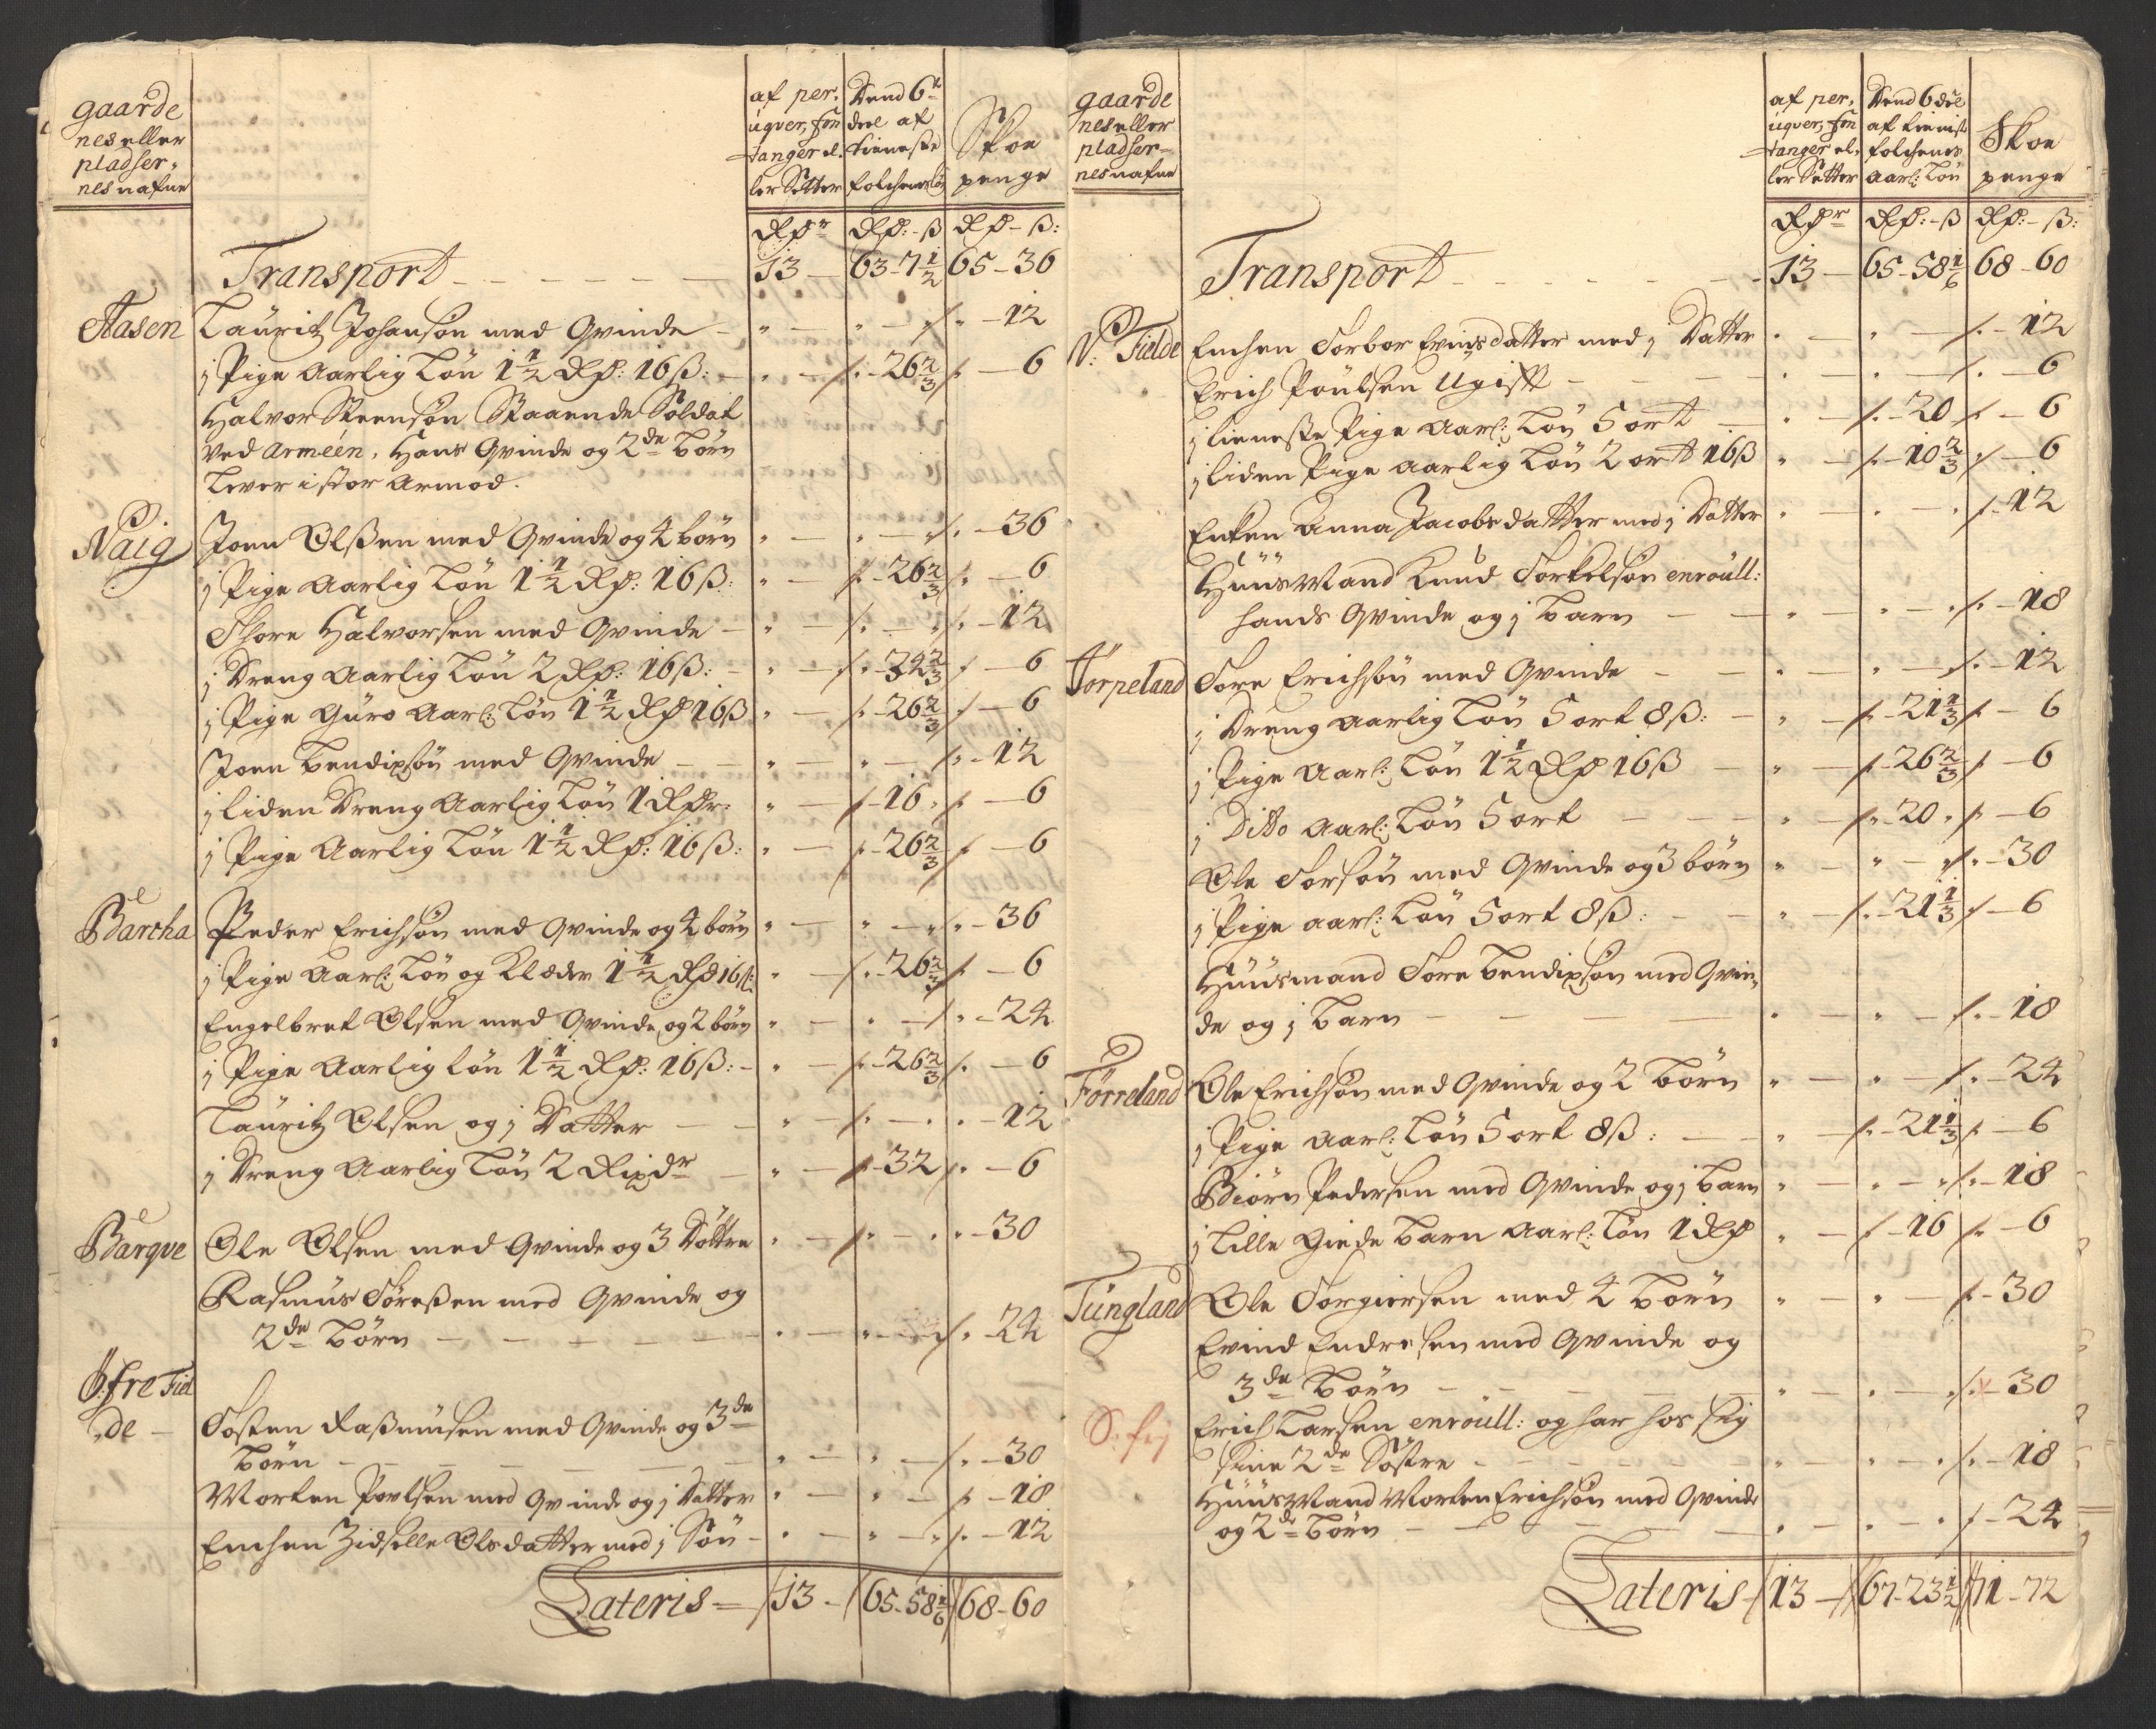 gaarde
nes eller
pladser-
nes nafne
af per-
uqver, fon
tanger el-
ler Setter
Dend 6te
deel af
tieneste
folchenes løn
Skoe
penge
Rdr Rd:-ß Rd-ß:
Transport - - - - - 13 - 63-7 1/2 65-36
Aasen Lauritz Johansøn med Qvinde - " - " - " - 12
j Pige Aarlig Løn 1 1/2 Rd: 16 ß: - " - 26 2/3 - 6
Halvor Steensøn Staaende Soldat
ved Arméen, Hans Qvinde og 2de børn
Lever i stor Armod.
Naig Joen Olßen med Qvinde og 4 børn " - " - 36
j Pige Aarlig Løn 1 1/2 Rd: 16 ß: " - 26 2/3 - 6
Thore Halvorsen med Qvinde - " - " - 12
j Dreng Aarlig Løn 2 Rd: 16 ß: - " - 34 2/3 - 6
j Pige Guro Aarl: Løn 1 1/2 Rd 16 ß " - 26 2/3 - 6
Joen Bendixsøn med Qvinde - - " - " - 12
j liden Dreng Aarlig Løn 1 Rdr: " - 16 - 6
j Pige Aarlig Løn 1 1/2 Rd: 16 ß: " - 26 2/3 - 6
Bartha Peder Erichsøn med Qvinde og 4 børn " - " - 36
j Pige Aarl: Løn og Klæder 1 1/2 Rd 16 ß: " - 26 2/3 - 6
Engelbret Olsen med Qvinde og 2 børn " - " - 24
j Pige Aarlig løn 1 1/2 Rd: 16 ß: - " - 26 2/3 - 6
Lauritz Olsen og j Datter - - " - " - 12
j Dreng Aarlig Løn 2 Rixdr - " - 32 - 6
Barqve Ole Olsen med Qvinde og 3 Døttre " - " - 30
Rasmus Toreßen med Qvinde og
2de Børn - - - - - " - " - 24
Øfre Fiel
de - Tosten Raßmusen med Qvinde og 3de
Børn - - - - - " - " - 30
Morten Povlsen med Qvinde og j Datter " - " - 18
Enchen Zidselle Olsdatter med j Søn - " - " - 12
Lateris - 13 - 65-58 1/6 68-60
gaarde
nes eller
pladser-
nes nafne
af per-
uqver, fon
tanger el-
ler Setter
Dend 6 deel
af tienist
folchenes
Aarl: Løn
Skoe
penge
Rdr Rd:-ß Rd:-ß:
Transport - - - - - 13 - 65-58 1/6 68-60
N: Fielde Enchen Torbor Evindsdatter med j Datter " - " - 12
Erich Poulsen Ugift - - - " - " - 6
j tieneste Pige Aarl: Løn 5 ort - " - 20 - 6
j liden Pige aarlig Løn 2 ort 16 ß " - 10 2/3 - 6
Enken Anna Jacobsdatter med j Datter " - " - 12
Huusmand Knud Torkelsøn enroull:
hands Qvinde og j barn - - " - " - 18
Törpeland Tore Erichsøn med Qvinde - - " - " - 12
j Dreng Aarlig Løn 5 ort 8 ß: - " - 21 1/3 - 6
j Pige Aarl: Løn 1 1/2 Rd 16 ß - " - 26 2/3 - 6
j Ditto Aarl: Løn 5 ort - - - " - 20 - 6
Ole Torsøn med Qvinde og 3 børn " - " - 30
j Pige aarl: Løn 5 ort 8 ß: - - " - 21 1/3 - 6
Huusmand Tore Bendixsøn med Qvin-
de og j Barn - - - - " - " - 18
Förreland Ole Erichsøn med Qvinde og 2 børn " - " - 24
j Pige Aarl: Løn 5 ort 8 ß: - - " - 21 1/3 - 6
Biörn Pedersen med Qvinde og j barn " - " - 18
j Lille Giede Barn Aarl: Løn 1 Rd " - 16 - 6
Tungland Ole Torgiersen med 4 Børn " - " - 30
Evind Endresen med Qvinde og
3de Børn - - - - - " - " - 30
Erich Larsen enroull: og har hos sig
sine 2de Søstre - - - - " - " - 18
Huusmand Morten Erichsøn med Qvinde
og 2de Børn - - - - - " - " - 24
Lateris - 13 - 67-23 1/2 71-72